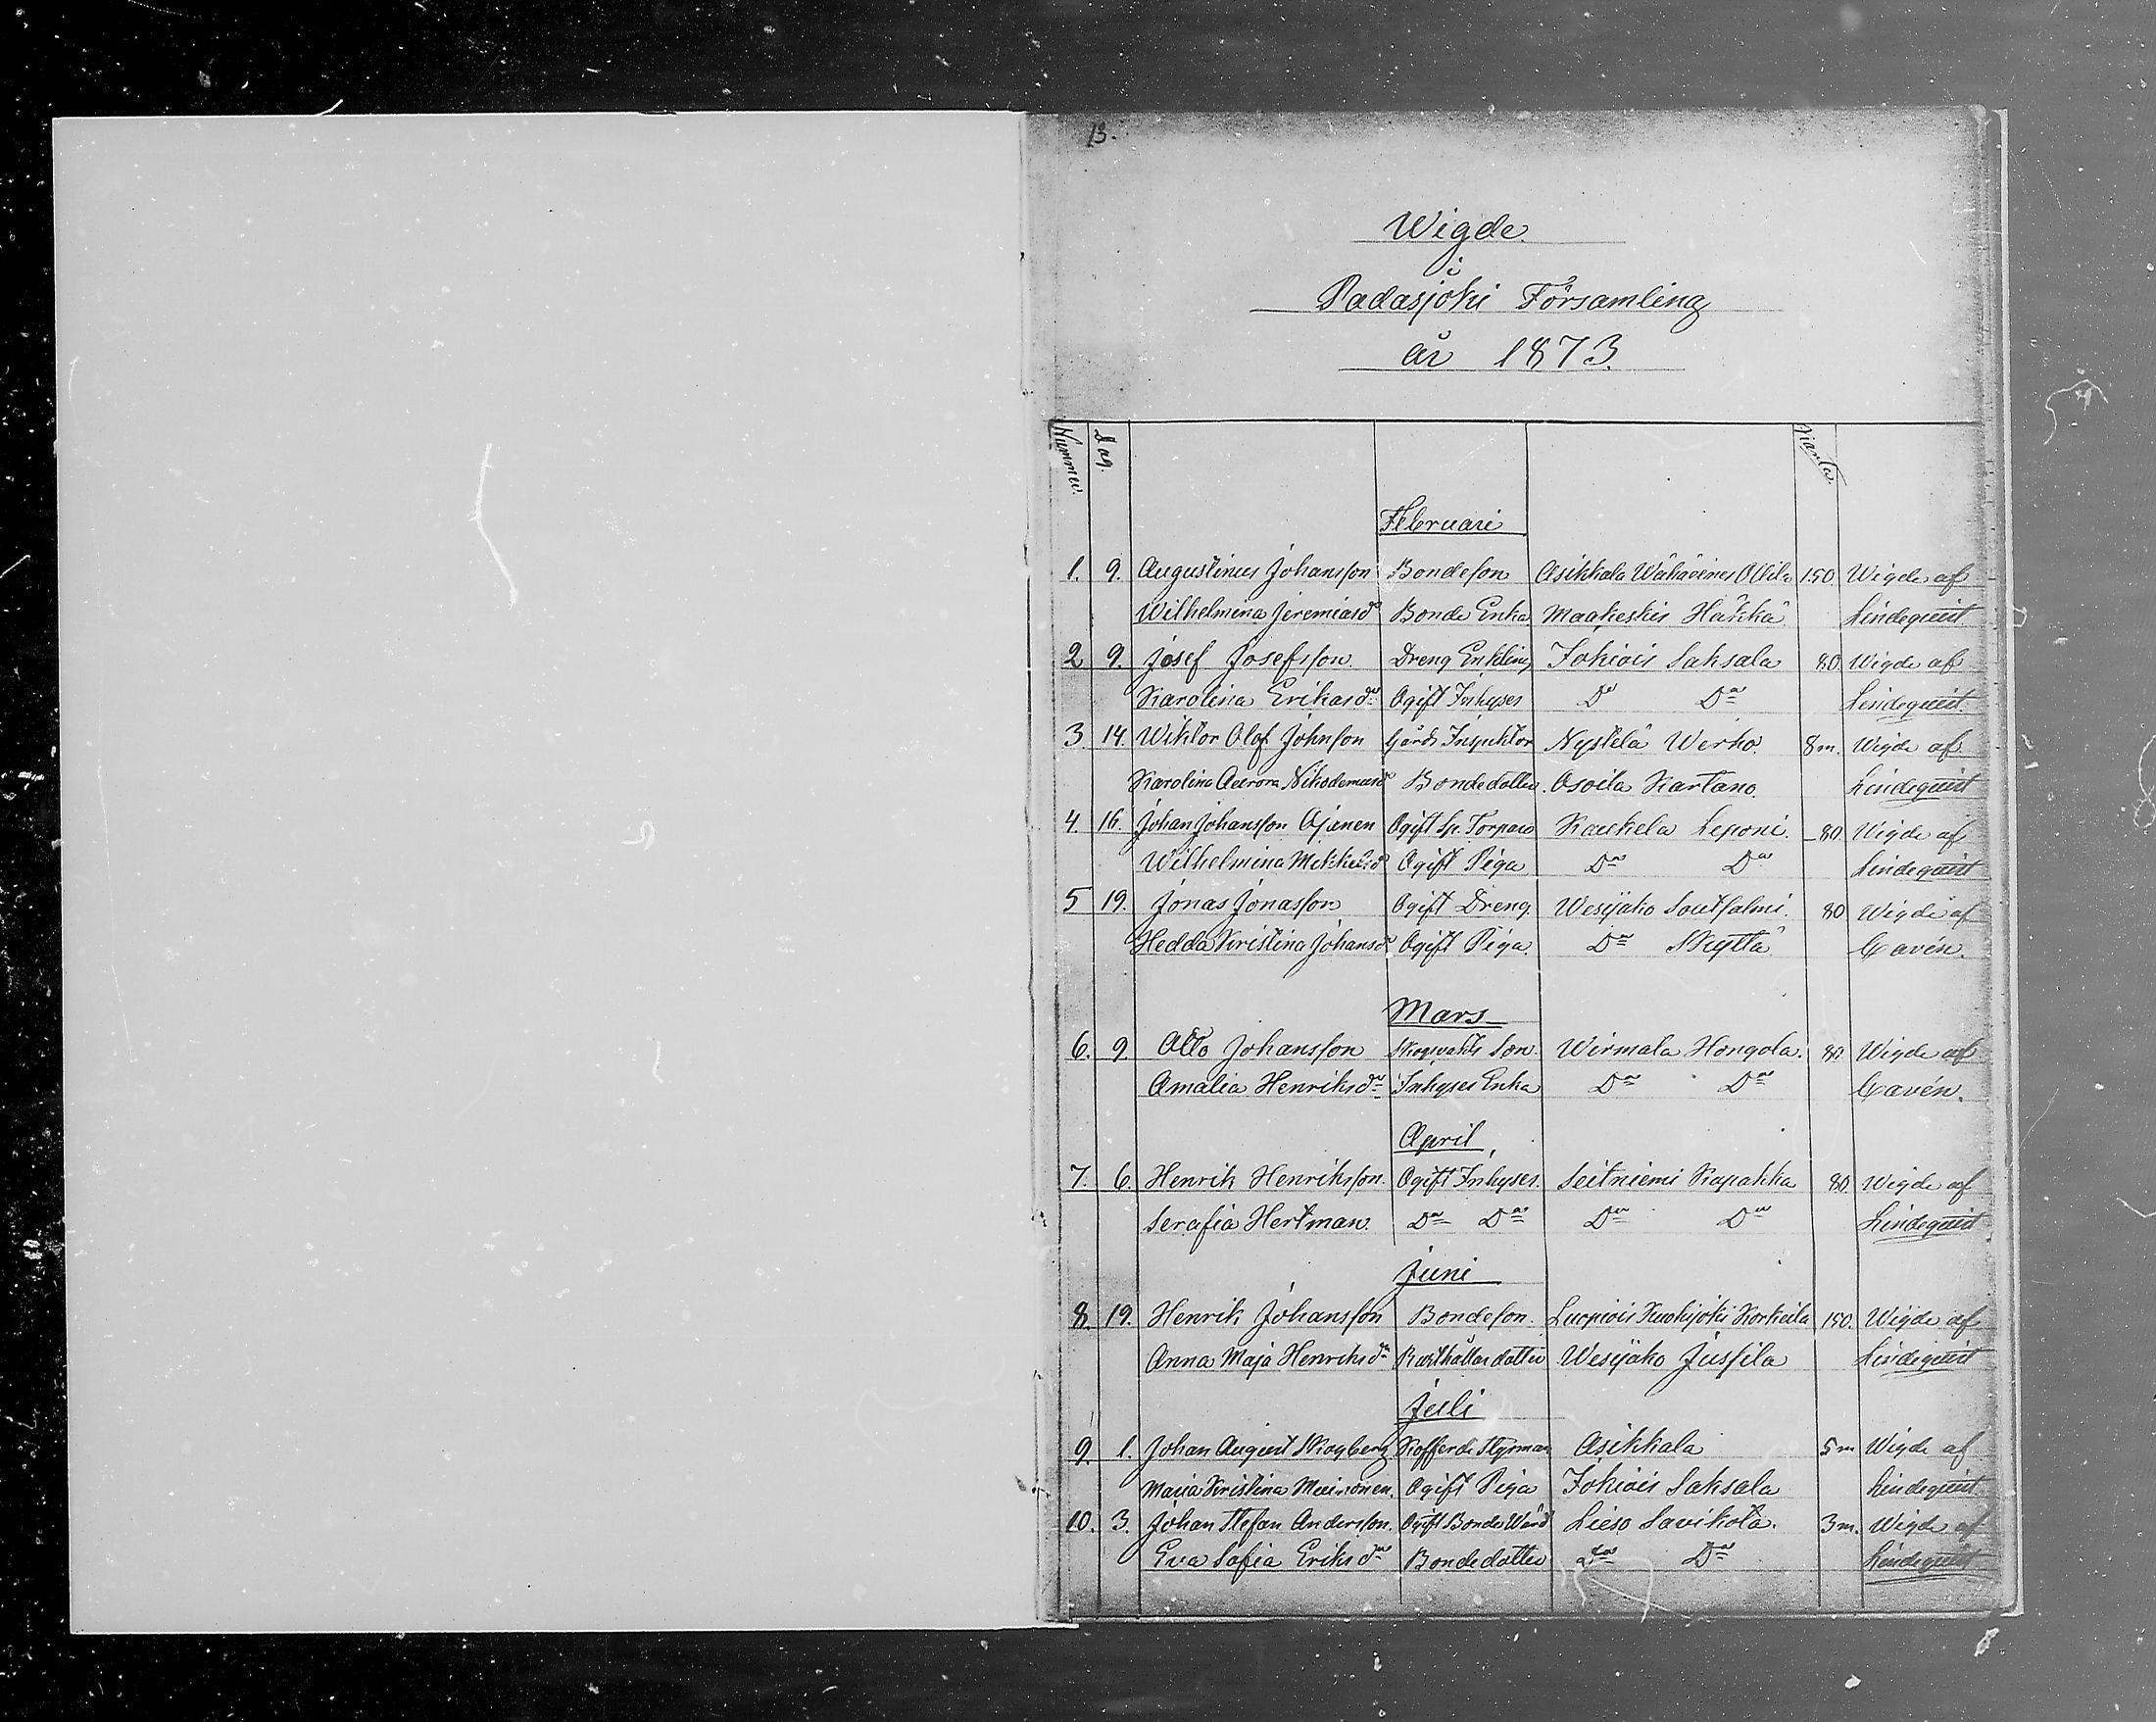 13.
Wigde
i
Padasjoki Församling
år 1873.
Nummer. Dag.
Februari
1. 9. Augustinus Johansson Bondeson Asikkala Wähäänes Ollila 1.50. Wigde af
Wilhelmina Jeremiasdr Bonde Enka Maakeskis Häkkä. Lindequist
2 9. Josef Josefsson Dreng Enkling Jokiois Saksala 80. Wigde af
Karolina Erikasdr Ogift Inhyses Do Do Lindequist.
3. 14. Wiktor Olof Johnson Gårds Inspektor Nystelä Werho. 8 m. Wigde af
Karolina Aurora Nikodemusdr Bondedotter. Osoila Kartano. Lindequist
4. 16. Johan Johansson Ajanen Ogift Sp. Torpare Kaukela Leponi. 80. Wigde af
Wilhelmina Mikkelsdr Ogift Piga Do Do Lindequist
5 19. Jonas Jonasson Ogift Dreng. Wesijako Soutsalmi. 80 Wigde af
Hedda Kristina Johansdr Ogift Piga. Do Skyttä. Cavén.
Mars
6. 9. Otto Johansson Skogvakts Son Wirmala Hongola. 80. Wigde af
Amalia Henriksdr Inhyses Enka Do Do Cavén.
April,
7. 6. Henrik Henriksson. Ogift Inhyses. Seitniemi Kapakka 80. Wigde af
Serafia Hertman. Do Do Do Do Lindequist
Juni
8. 19. Henrik Johansson Bondeson. Luopiois Kuohijoki Korkeila 1.50. Wigde af
Anna Maja Henriksdr Rusthållar dotter Wesijako Jussila Lindequist
Juli
9. 1. Johan August Skogberg Kofferdi Styrman Asikkala 5 m Wigde af
Maria Kristina Muinonen. Ogift Piga Jokiois Saksala Lindequist
10. 3. Johan Stefan Andersson. Ogift Bonde Wärd Lieso Savikota. 3 m. Wigde af
Eva Sofia Eriksdr Bondedotter Do Do Lindequist